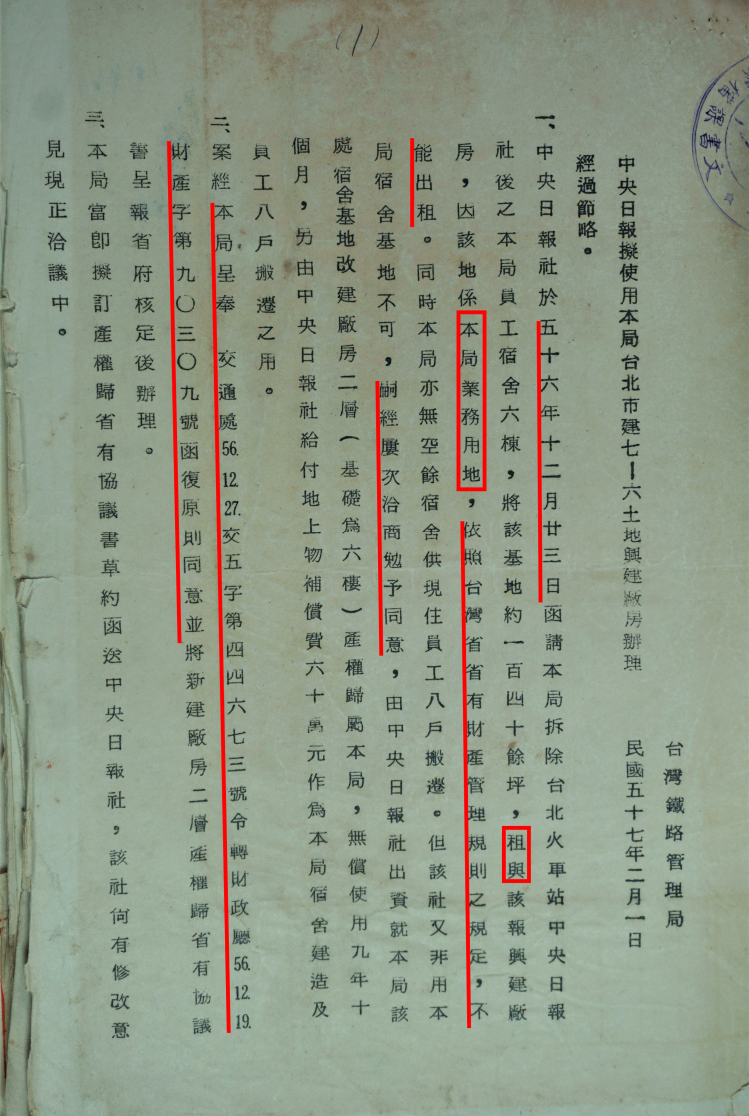 (1)
文書課
中央日報擬使用本局台北市建七-六土地興建廠房辦理
經過節略。
台灣鐵路管理局
民國五十七年二月一日
一、中央日報社於五十六年十二月廿三日函請本局拆除台北火車站中央日報
社後之本局員工宿舍六棟,將該基地約一百四十餘坪,租與該報興建廠
房,因該地係本局業務用地,依照台灣省省有財產管理規則之規定,不
能出租。同時本局亦無空餘宿舍供現住員工八戶搬遷。但該社又非用本
局宿舍基地不可,嗣經屢次洽商勉予同意,由中央日報社出資就本局該
處宿舍基地改建廠房二層(基礎為六樓)產權歸屬本局,無償使用九年十
個月,另由中央日報社給付地上物補償費六十萬元作為本局宿舍建造及
員工八戶搬遷之用。
二、案經本局呈奉 交通處56.12.27.交五字第四四六七三號令轉財政廳56.12.19.
財產字第九〇三〇九號函復原則同意並將新建廠房二層產權歸省有協議
書呈報省府核定後辦理。
三、本局當即擬訂產權歸省有協議書草約函送中央日報社,該社尚有修改意
見現正洽議中。